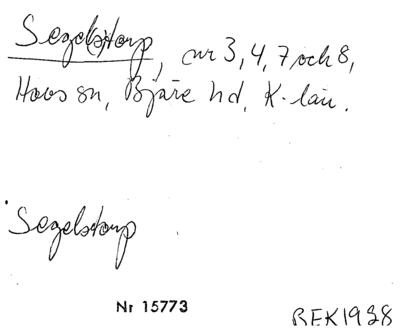 Segel(s)torp, nr 3, 4, 7 och 8,
Hovs sn, Bjäre hd, K-län.
Segelstorp
Nr 15773
BEK1938